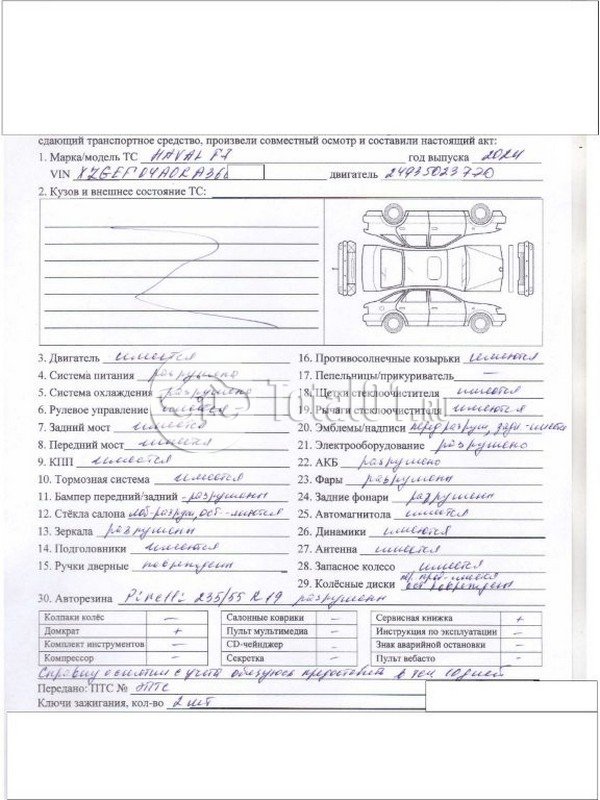 сдающий транспортное средство, произвели совместный осмотр и составили настоящий акт:
1. Марка/модель ТС HAVAL F7 год выпуска 2024
VIN двигатель
2. Кузов и внешнее состояние ТС:
3. Двигатель имеется
4. Система питания разрушено
5. Система охлаждения разрушено
6. Рулевое управление имеется
7. Задний мост имеется
8. Передний мост имеется
9. КПП имеется
10. Тормозная система имеется
11. Бампер передний/задний - разрушены
12. Стёкла салона лоб-разруш,
13. Зеркала разрушены
14. Подголовники имеются
15. Ручки дверные повреждены
16. Противосолнечные козырьки имеются
17. Пепельницы/прикуриватель —
18. Щетки стеклоочистителя имеются
19. Рычаги стеклоочистителя имеются
20. Эмблемы/надписи перед разруш,
21. Электрооборудование разрушено
22. АКБ разрушено
23. Фары разрушены
24. Задние фонари разрушены
25. Автомагнитола имеется
26. Динамики имеются
27. Антенна имеется
28. Запасное колесо имеется
29. Колёсные диски
30. Авторезина Pirelli 235/55 R19 разрушены
Колпаки колёс — Салонные коврики — Сервисная книжка +
Домкрат + Пульт мультимедиа — Инструкция по эксплуатации —
Комплект инструментов — CD-чейнджер — Знак аварийной остановки —
Компрессор — Секретка — Пульт вебасто
Справку о снятии с учета обязуюсь предоставить в теч 10 дней
Передано: ПТС № ЭПТС
Ключи зажигания, кол-во 2 шт
Total01.ru